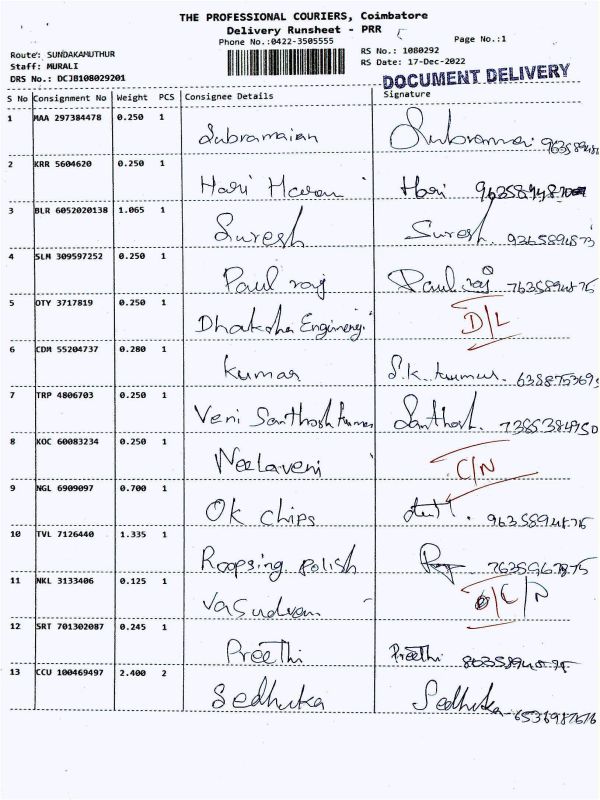 THE PROFESSIONAL COURIERS, Coimbatore
Delivery Runsheet - PRR
Phone No.:0422-3505555
Page No.:1
Route: SUNDAKAMUTHUR
RS No.: 1080292
Staff: MURALI
RS Date: 17-Dec-2022
DRS No.: DCJB108029201
DOCUMENT DELIVERY
S No Consignment No Weight PCS Consignee Details Signature
1 MAA 297384478 0.250 1 Subramaian
2 KRR 5604620 0.250 1 Hari Haran Hari
3 BLR 6052020138 1.065 1 Suresh Suresh.
4 SLM 309597252 0.250 1 Paul raj Paul raj
5 OTY 3717819 0.250 1 Dhaksha D/L
6 CDM 55204737 0.280 1 Kumar S.K. Kumar.
7 TRP 4806703 0.250 1 Veni Santhosh Kumar Santhosh.
8 KOC 60083234 0.250 1 Neelaveni C/N
9 NGL 6909097 0.700 1 OK chips
10 TVL 7126440 1.335 1 Roopsing polish
11 NKL 3133406 0.125 1
12 SRT 701302087 0.245 1 Preethi Preethi
13 CCU 100469497 2.400 2 Sedhuka Sedhuka